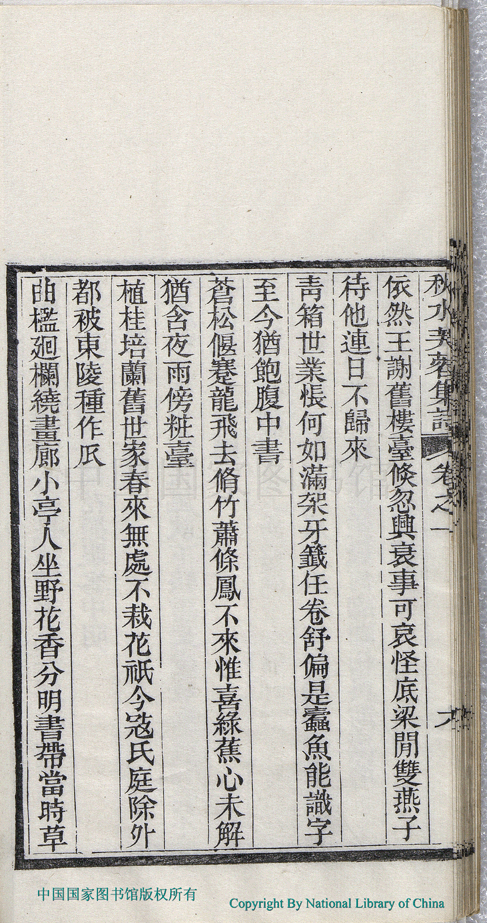 秋水芙蓉集詩 卷之一
依然王謝舊樓臺倏忽興衰事可哀怪底梁間雙燕子
待他連日不歸來
靑箱世業悵何如滿架牙籤任卷舒偏是蠹魚能識字
至今猶飽腹中書
蒼松偃蹇龍飛去脩竹蕭條鳳不來惟喜綠蕉心未解
猶含夜雨傍粧臺
植桂培蘭舊世家春來無處不栽花祇今寇氏庭除外
都被東陵種作瓜
曲檻廻欄繞畫廊小亭人坐野花香分明書帶當時草
中国国家图书馆版权所有
Copyright By National Library of China